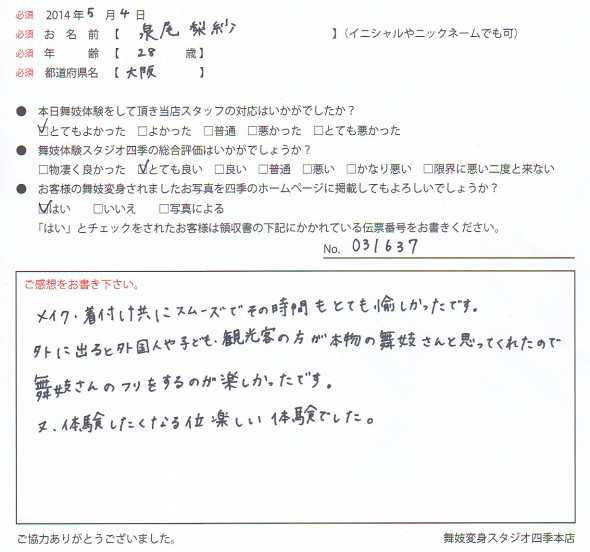 必須 2014年5月4日
必須 お名前【 泉尾 梨紗 】(イニシャルやニックネームでも可)
必須 年齢【 28 歳】
必須 都道府県名【 大阪 】
● 本日舞妓体験をして頂き当店スタッフの対応はいかがでしたか?
☑とてもよかった □よかった □普通 □悪かった □とても悪かった
● 舞妓体験スタジオ四季の総合評価はいかがでしょうか?
□物凄く良かった ☑とても良い □良い □普通 □悪い □かなり悪い □限界に悪い二度と来ない
● お客様の舞妓変身されましたお写真を四季のホームページに掲載してもよろしいでしょうか?
☑はい □いいえ □写真による
「はい」とチェックをされたお客様は領収書の下記にかかれている伝票番号をお書きください。
No. 031637
ご感想をお書き下さい。
メイク・着付け共にスムーズでその時間もとても愉しかったです。
外に出ると外国人や子ども、観光客の方が本物の舞妓さんと思ってくれたので
舞妓さんのフリをするのが楽しかったです。
又、体験したくなる位楽しい体験でした。
ご協力ありがとうございました。
舞妓変身スタジオ四季本店